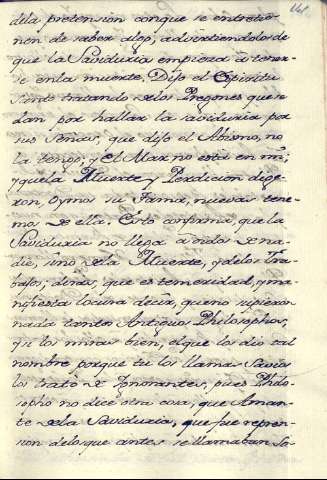 141.
dela pretension conque se entretie-
nen de saber algo, advirtiendoles de
que la Saviduria empieza atener-
se en la muerte. Dijo el Espiritu
Santo tratando delos Pregones que se
dan por hallar la saviduria por
sus Señas, que dijo el Abismo, no
la tengo; y el Mar no está en mi;
y que la Muerte y Perdicion dige-
ron, oymos su Fama, nuevas tene-
mos de ella. Esto confirma, que la
Saviduria no llega a oidos de na-
die, sino dela Muerte, y delos Tra-
bajos, diras, que es temeridad, y ma-
nifiesta locura decir, que no supieron
nada tantos Antiguos Philosophos,
y si los miras bien, el que los dio tal
nombre porque tu los llamas Savios
los trató de Ignorantes, pues Philo-
sopho no dice otra cosa, que Aman-
te dela Saviduria, que fue repren-
sion delos que antes se llamaban So-